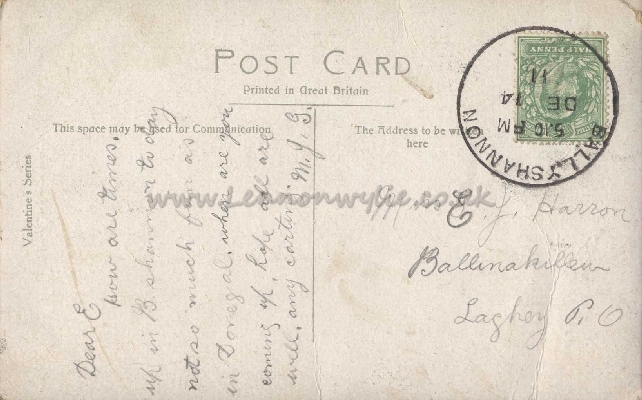 POST CARD
Printed in Great Britain
This space may be used for Communication
The Address to be written here
Valentine's Series
HALFPENNY
BALLYSHANNON
5.10 PM
DE 14
11
www.Lennonwylie.co.uk
Dear E
how are times.
up in B. shannon to day
not so much fun as
in Donegal, when are you
coming up, hope all are
well, any cortin M.J.G.
E. J. Harron
Ballinakillew
Laghey P.O